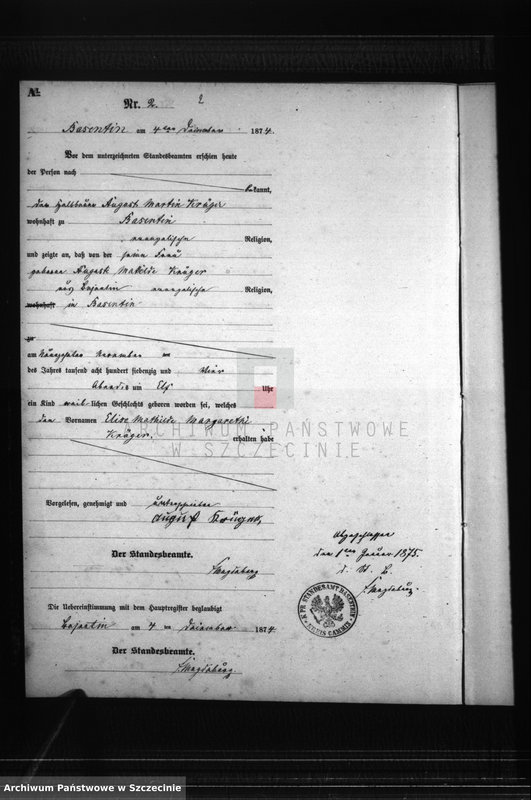 Nr. 2.
2
Basentin am 4ten Dezember 1874.
Vor dem unterzeichneten Standesbeamten erschien heute
der Person nach
bekannt,
August Martin Krüger
wohnhaft zu Basentin
evangelische Religion,
und zeigte an, daß von der seine Frau
geborene August Mathilde Krüger
evangelische Religion,
wohnhaft in Basentin
zu
am November
des Jahres tausend acht hundert siebenzig und vier
Abends um Elf Uhr
ein Kind weiblichen Geschlechts geboren worden sei, welches
den Vornamen Elise Mathilde Margarethe
Krüger. erhalten habe
Vorgelesen, genehmigt und unterschrieben
August Krüger
Der Standesbeamte.
Magdeburg
Die Uebereinstimmung mit dem Hauptregister beglaubigt
am 4 ten Dezember 1874.
Der Standesbeamte.
Magdeburg.
Abgeschlossen
den 1ten Januar 1875.
d. St. B.
Magdeburg
K. PR. STANDESAMT BASENTIN
KREIS CAMMIN
ARCHIWUM PAŃSTWOWE
W SZCZECINIE
Archiwum Państwowe w Szczecinie